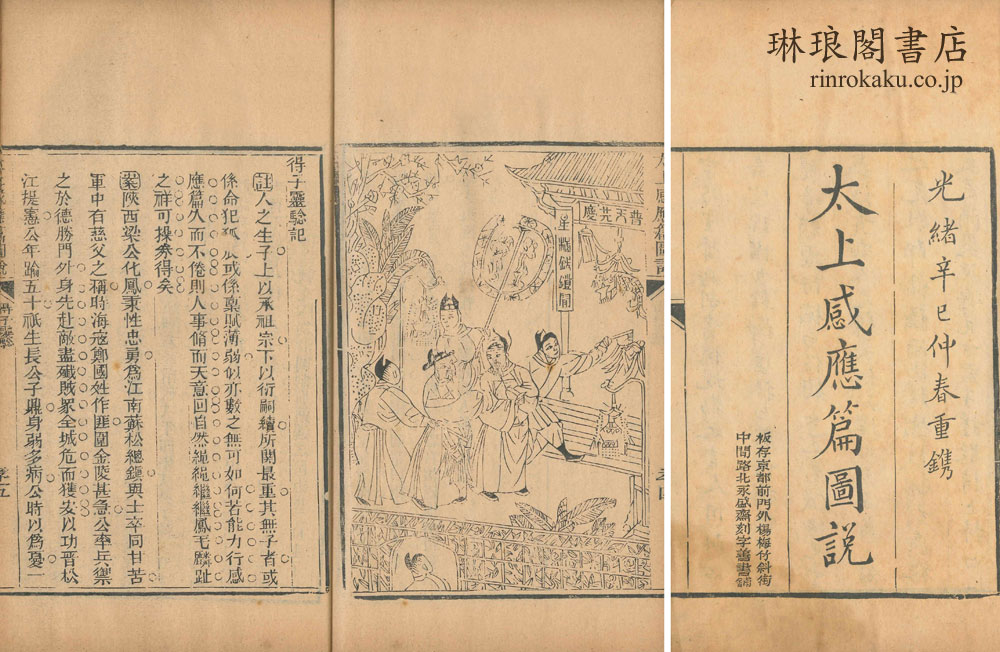 琳琅閣書店
rinrokaku.co.jp
光緒辛巳仲春重鐫
太上感應篇圖説
板存京都前門外楊梅竹斜街
中間路北永盛齋刻字善書舖
普天共慶
得子靈驗記
註人之生子上以承祖宗下以衍嗣續所関最重其無子者或
係命犯孤辰或係稟賦薄弱似亦數之無可如何若能力行感
應篇久而不倦則人事脩而天意回自然繩繩繼繼鳳毛麟趾
之祥可操券得矣
案陝西梁公化鳳秉性忠勇爲江南蘇松總鎮與士卒同甘苦
軍中有慈父之稱時海寇鄭國姓作匪圍金陵甚急公率兵禦
之於德勝門外身先赴敵盡殲賊衆全城危而獲安以功晉松
江提憲公年踰五十祇生長公子鼐身弱多病公時以爲憂一